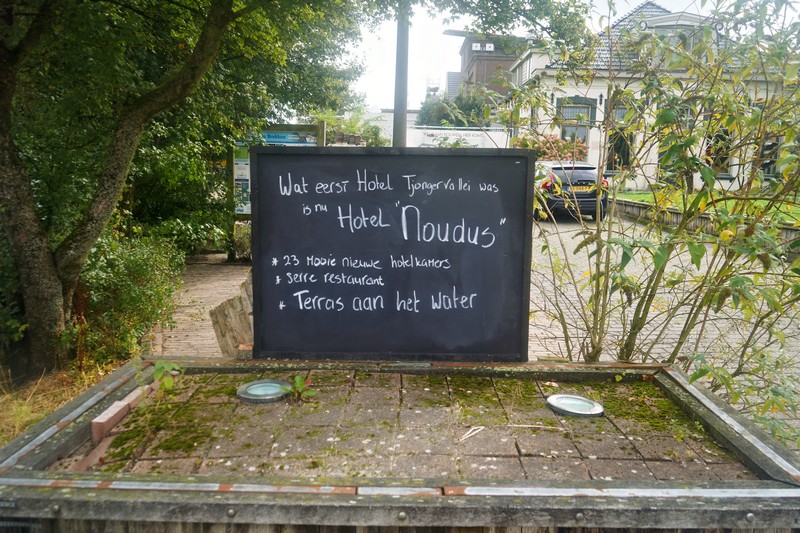 Wat eerst Hotel Tjongervallei was
is nu Hotel "Noudus"
* 23 Mooie nieuwe hotelkamers
* Serre restaurant
* Terras aan het water